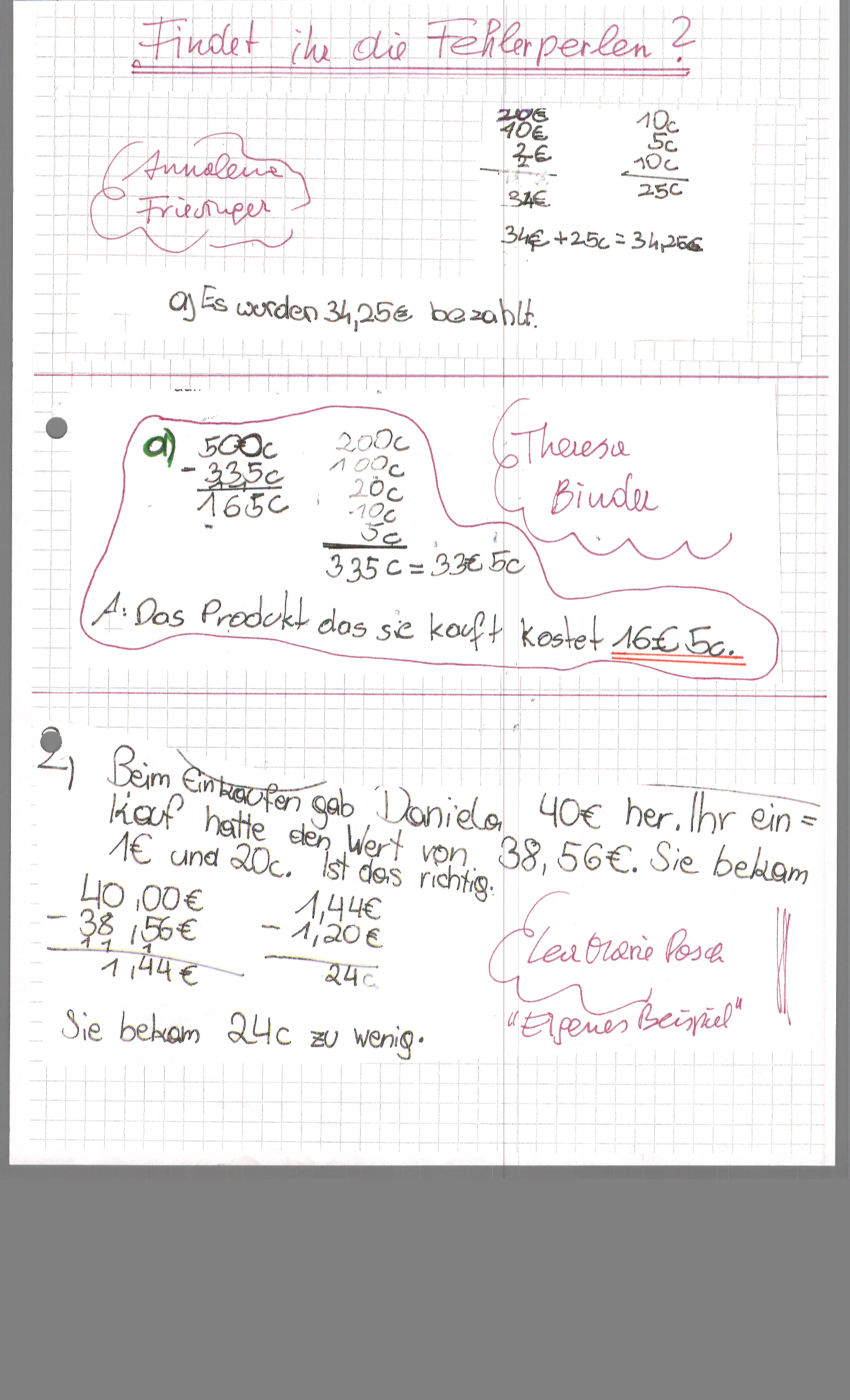 Findet ihr die Fehlerperlen?
Annalena
Frieringer
20€
10€
2€
2€
34€
10c
5c
10c
25c
34€ + 25c = 34,25€
a) Es wurden 34,25€ bezahlt.
a) 500c
- 335c
165c
200c
100c
20c
10c
5c
335c = 33€ 5c
Theresa
Binder
A: Das Produkt das sie kauft kostet 16€ 5c.
2)
Beim Einkaufen gab Daniela 40€ her. Ihr ein=
kauf hatte den Wert von 38,56€. Sie bekam
1€ und 20c. Ist das richtig.
40,00€
- 38,56€
1 1 1
1,44€
1,44€
- 1,20€
24c
Lea Marie Posch
"Eigenes Beispiel"
Sie bekam 24c zu wenig.